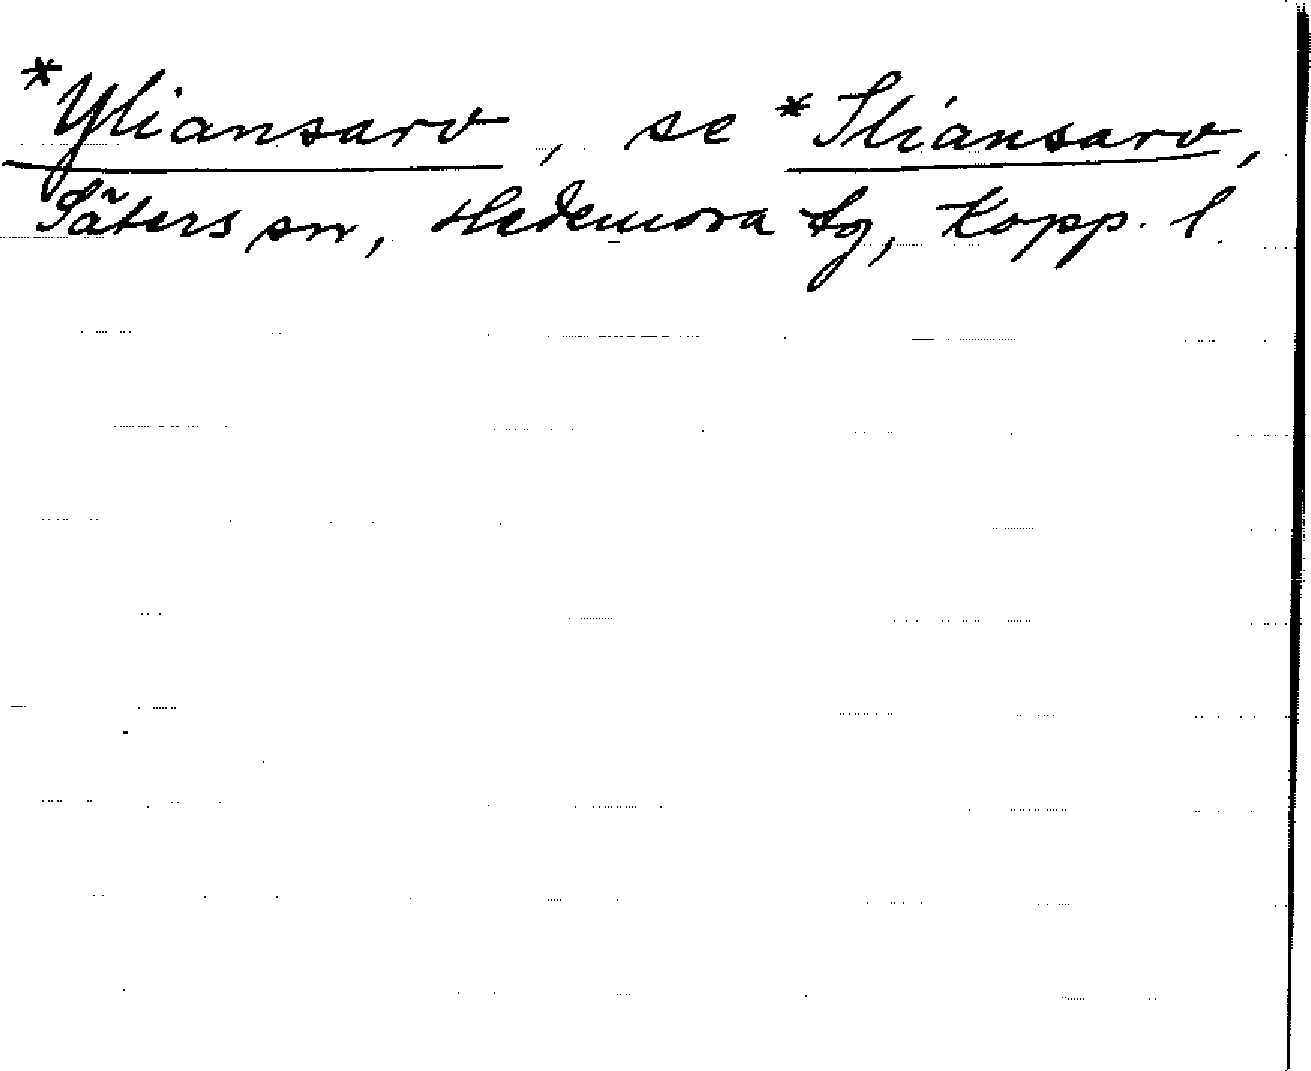 *Yliansarv, se *Iliansarv,
Säters sn, Hedemora tg, Kopp. l.